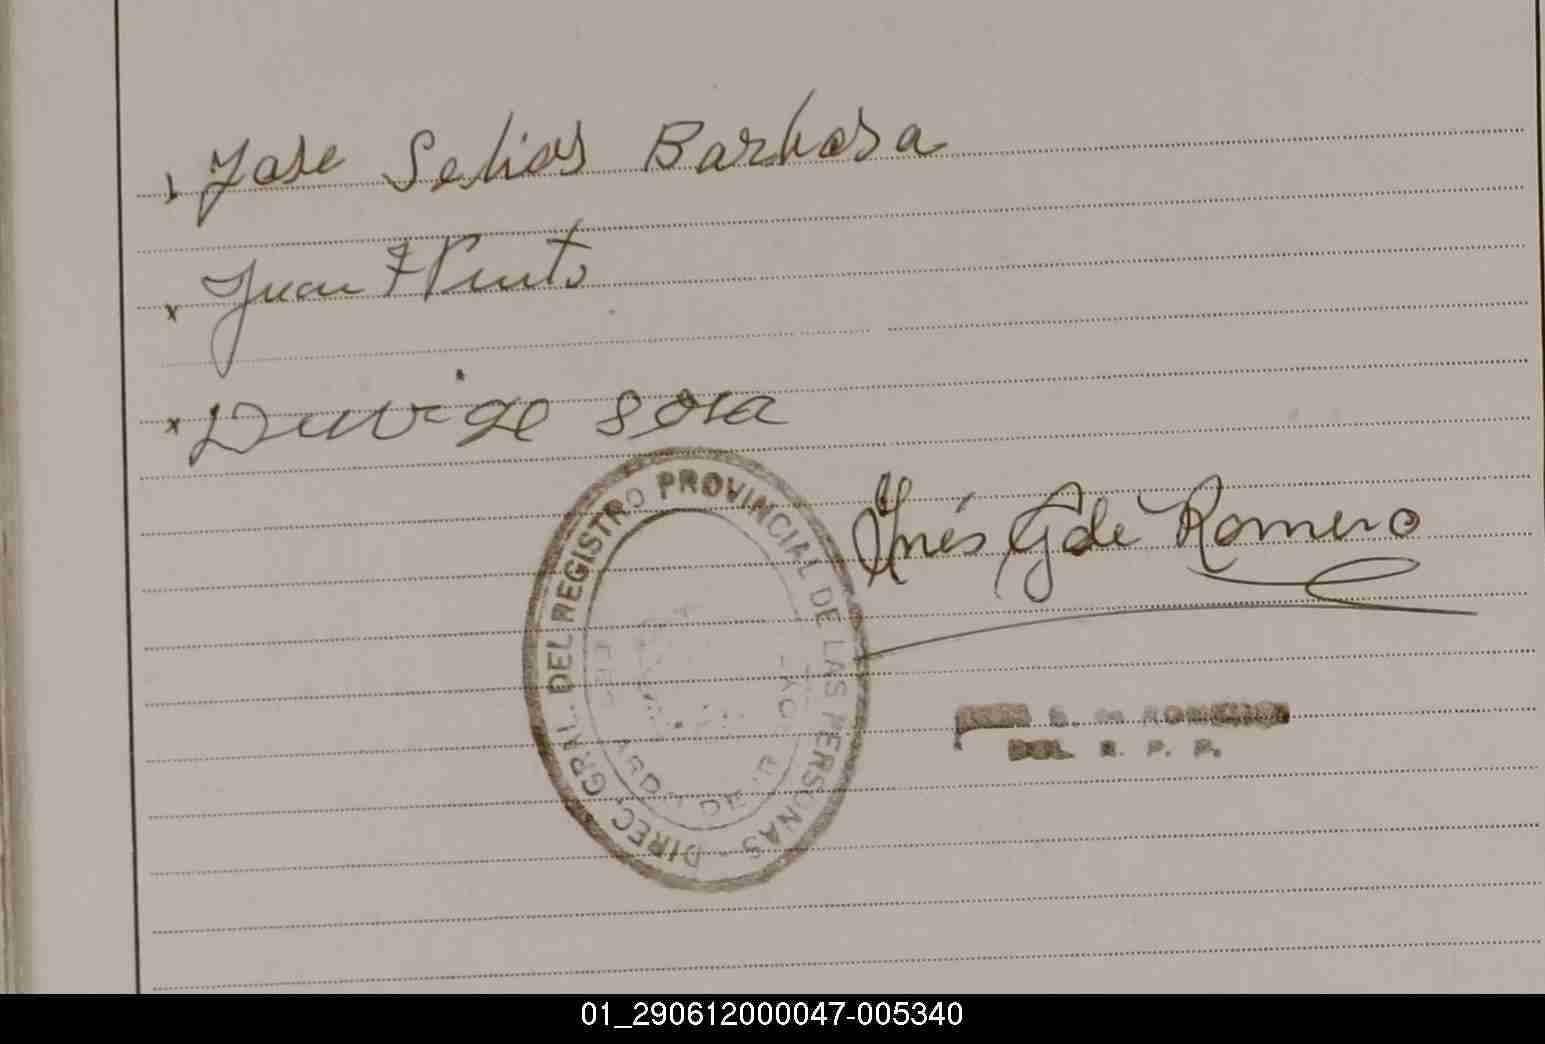 Jose Selios Barbosa
x Juan F Pinto
x sosa
Inés G de Romero
DIREC. GRAL. DEL REGISTRO PROVINCIAL DE LAS PERSONAS -
DE ROMERO
DEL R. P. P.
01_290612000047-005340